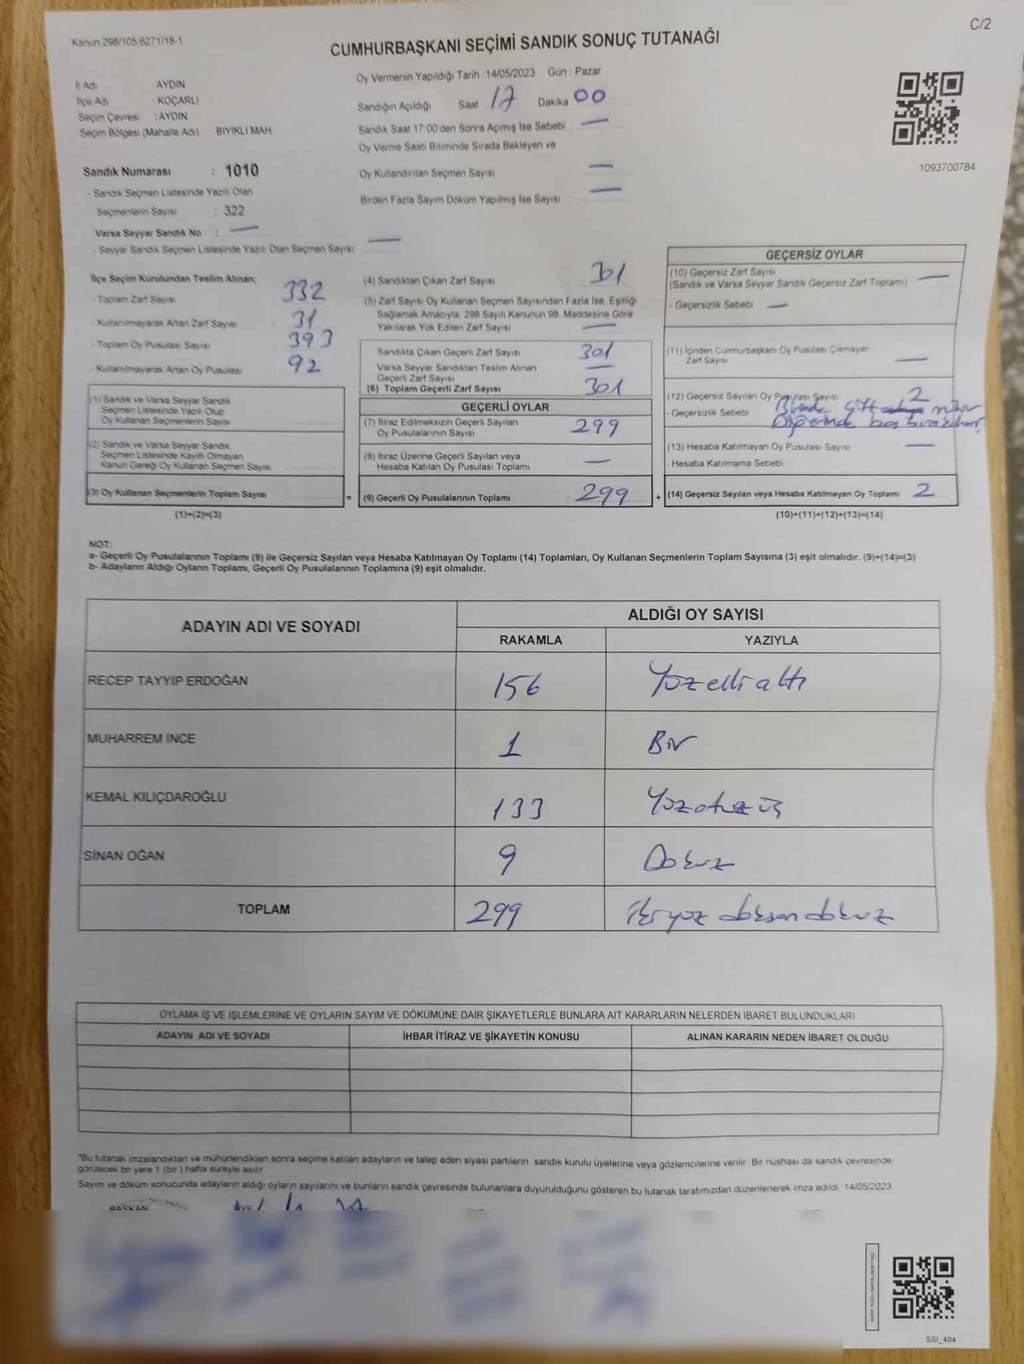 C/2
Kanun 298/105/6271/18-1
CUMHURBAŞKANI SEÇİMİ SANDIK SONUÇ TUTANAĞI
İl Adı AYDIN
İlçe Adı KOÇARLI
Seçim Çevresi : AYDIN
Seçim Bölgesi (Mahalle Adı) BIYIKLI MAH
Oy Vermenin Yapıldığı Tarih :14/05/2023 Gün : Pazar
Sandığın Açıldığı Saat 17 Dakika 00
Sandık Saat 17:00'den Sonra Açmış İse Sebebi —
Oy Verme Saati Bitiminde Sırada Bekleyen ve
Oy Kullandırılan Seçmen Sayısı —
Birden Fazla Sayım Döküm Yapılmış İse Sayısı —
1093700784
Sandık Numarası : 1010
- Sandık Seçmen Listesinde Yazılı Olan
Seçmenlerin Sayısı : 322
Varsa Seyyar Sandık No : —
- Seyyar Sandık Seçmen Listesinde Yazılı Olan Seçmen Sayısı: —
İlçe Seçim Kurulundan Teslim Alınan;
- Toplam Zarf Sayısı 332
- Kullanılmayarak Artan Zarf Sayısı 31
- Toplam Oy Pusulası Sayısı 393
- Kullanılmayarak Artan Oy Pusulası 92
(1) Sandık ve Varsa Seyyar Sandık
Seçmen Listesinde Yazılı Olup
Oy Kullanan Seçmenlerin Sayısı
(2) Sandık ve Varsa Seyyar Sandık
Seçmen Listesinde Kayıtlı Olmayan
Kanun Gereği Oy Kullanan Seçmen Sayısı
(3) Oy Kullanan Seçmenlerin Toplam Sayısı
(1)+(2)=(3)
=
(4) Sandıktan Çıkan Zarf Sayısı 301
(5) Zarf Sayısı Oy Kullanan Seçmen Sayısından Fazla İse, Eşitliği
Sağlamak Amacıyla, 298 Sayılı Kanunun 98. Maddesine Göre
Yakılarak Yok Edilen Zarf Sayısı —
Sandıkta Çıkan Geçerli Zarf Sayısı 301
Varsa Seyyar Sandıktan Teslim Alınan
Geçerli Zarf Sayısı —
(6) Toplam Geçerli Zarf Sayısı 301
GEÇERLİ OYLAR
(7) İtiraz Edilmeksizin Geçerli Sayılan
Oy Pusulalarının Sayısı 299
(8) İtiraz Üzerine Geçerli Sayılan veya
Hesaba Katılan Oy Pusulası Toplamı —
(9) Geçerli Oy Pusulalarının Toplamı 299
+
GEÇERSİZ OYLAR
(10) Geçersiz Zarf Sayısı
(Sandık ve Varsa Seyyar Sandık Geçersiz Zarf Toplamı) —
- Geçersizlik Sebebi —
(11) İçinden Cumhurbaşkanı Oy Pusulası Çıkmayan
Zarf Sayısı —
(12) Geçersiz Sayılan Oy Pusulası Sayısı 2
- Geçersizlik Sebebi Birinde Çift
(13) Hesaba Katılmayan Oy Pusulası Sayısı —
- Hesaba Katılmama Sebebi
(14) Geçersiz Sayılan veya Hesaba Katılmayan Oy Toplamı 2
(10)+(11)+(12)+(13)=(14)
NOT:
a- Geçerli Oy Pusulalarının Toplamı (9) ile Geçersiz Sayılan veya Hesaba Katılmayan Oy Toplamı (14) Toplamları, Oy Kullanan Seçmenlerin Toplam Sayısına (3) eşit olmalıdır. (9)+(14)=(3)
b- Adayların Aldığı Oyların Toplamı, Geçerli Oy Pusulalarının Toplamına (9) eşit olmalıdır.
ADAYIN ADI VE SOYADI
ALDIĞI OY SAYISI
RAKAMLA YAZIYLA
RECEP TAYYİP ERDOĞAN 156 Yüzellialtı
MUHARREM İNCE 1 Bir
KEMAL KILIÇDAROĞLU 133 Yüzotuzüç
SİNAN OĞAN 9 Dokuz
TOPLAM 299 ikiyüz doksan dokuz
OYLAMA İŞ VE İŞLEMLERİNE VE OYLARIN SAYIM VE DÖKÜMÜNE DAİR ŞİKAYETLERLE BUNLARA AİT KARARLARIN NELERDEN İBARET BULUNDUKLARI
ADAYIN ADI VE SOYADI İHBAR İTİRAZ VE ŞİKAYETİN KONUSU ALINAN KARARIN NEDEN İBARET OLDUĞU
*Bu tutanak imzalandıktan ve mühürlendikten sonra seçime katılan adayların ve talep eden siyasi partilerin sandık kurulu üyelerine veya gözlemcilerine verilir. Bir nüshası da sandık çevresinde
görülecek bir yere 1 (bir ) hafta süreyle asılır.
Sayım ve döküm sonucunda adayların aldığı oyların sayılarını ve bunların sandık çevresinde bulunanlara duyurulduğunu gösteren bu tutanak tarafımızdan düzenlenerek imza edildi. 14/05/2023
BAŞKAN
SSI_404